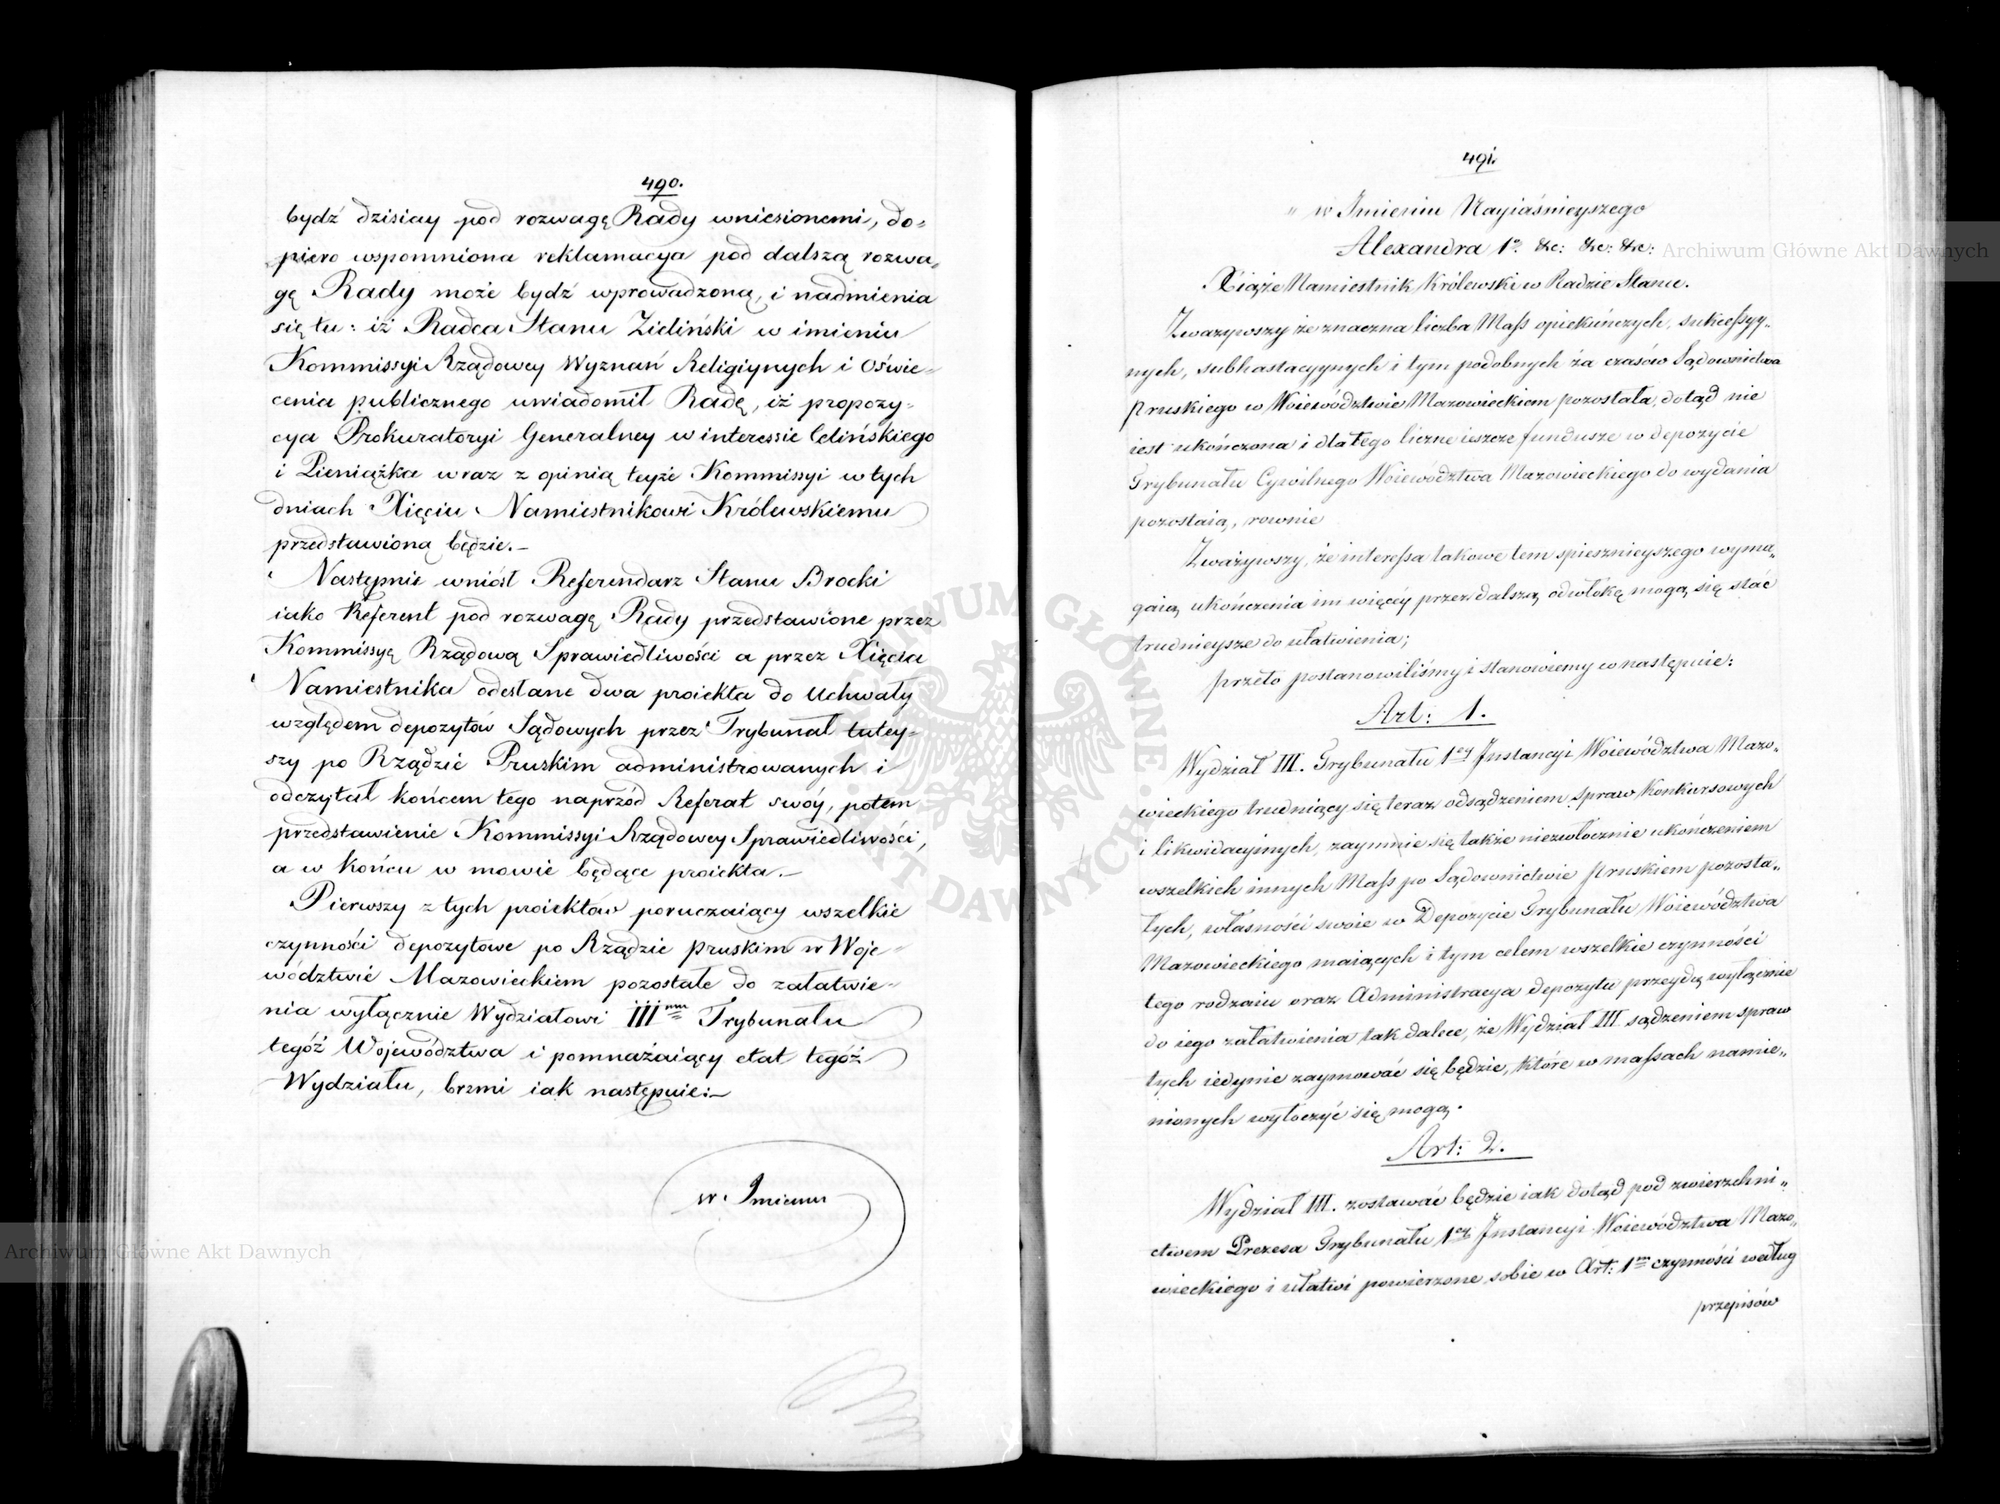 490.
bydź dzisiay pod rozwagę Rady wniesionemi, do-
piero wspomniona reklamacya pod dalszą rozwa-
gę Rady może bydź wprowadzoną, i nadmienia
się tu: iż Radca Stanu Zieliński w imieniu
Kommissyi Rządowey Wyznań Religiynych i Oświe-
cenia publicznego uwiadomił Radę, iż propozy-
cya Prokuratoryi Generalney w interessie Celińskiego
i Pieniążka wraz z opinią teyże Kommissyi w tych
dniach Xięciu Namiestnikowi Królewskiemu
przedstawioną będzie.–
Następnie wniósł Referendarz Stanu Brocki
iako Referent pod rozwagę Rady przedstawione przez
Kommissyę Rządową Sprawiedliwości a przez Xięcia
Namiestnika odesłane dwa proiekta do Uchwały
względem depozytów Sądowych przez Trybunał tutey-
szy po Rządzie Pruskim administrowanych i
odczytał końcem tego naprzód Referat swóy, potem
przedstawienie Kommissyi Rządowey Sprawiedliwości,
a w końcu w mowie będące proiekta.–
Pierwszy z tych proiektów poruczaiący wszelkie
czynności depozytowe po Rządzie pruskim w Woje-
wództwie Mazowieckiem pozostałe do załatwie-
nia wyłącznie Wydziałowi III nm Trybunału
tegóż Województwa i pomnażaiący etat tegóż
Wydziału, brzmi iak następuie:–
w Imieniu
491.
„ w Imieniu Nayiaśnieyszego
Alexandra 1o. &c: &c: &c:
Xiąże Namiestnik Królewski w Radzie Stanu.
Zważywszy że znaczna liczba Mass opiekuńczych, sukcessyy-
nych, subhastacyynych i tym podobnych za czasów Sądownictwa
pruskiego w Woiewództwie Mazowieckiem pozostała, dotąd nie
iest ukończona i dla tego liczne ieszcze fundusze w depozycie
Trybunału Cywilnego Woiewództwa Mazowieckiego do wydania
pozostaią, rownie
Zważywszy, że interessa takowe tem spiesznieyszego wyma-
gaią ukończenia im więcéy przez dalszą odwłokę mogą się stać
trudnieysze do ułatwienia;
przeto postanowiliśmy i stanowiemy w następuie:
Art: 1.
Wydział III. Trybunału 1ey Instancyi Woiewództwa Mazo-
wieckiego trudniący się teraz odsądzeniem spraw konkursowych
i likwidacyinych, zaymnie się także niezwłocznie ukończeniem
wszelkich innych Mass po Sądownictwie pruskiem pozosta-
łych, własności swoie w Depozycie Trybunału Woiewództwa
Mazowieckiego maiących i tym celem wszelkie czynności
tego rodzaiu oraz Administracya depozytu przeydą wyłącznie
do iego załatwienia tak dalece, że Wydział III sądzeniem spraw
tych iedynie zaymować się będzie, które w massach namie-
nionych wytoczyć się mogą.
Art: 2.
Wydział III. zostawać będzie iak dotąd pod zwierzchni-
ctwem Prezesa Trybunału 1ey Instancyi Woiewództwa Mazo-
wieckiego i ułatwi powierzone sobie w Art: 1m czynności według
przepisów
Archiwum Główne Akt Dawnych
Archiwum Główne Akt Dawnych
ARCHIWUM GŁÓWNE AKT DAWNYCH